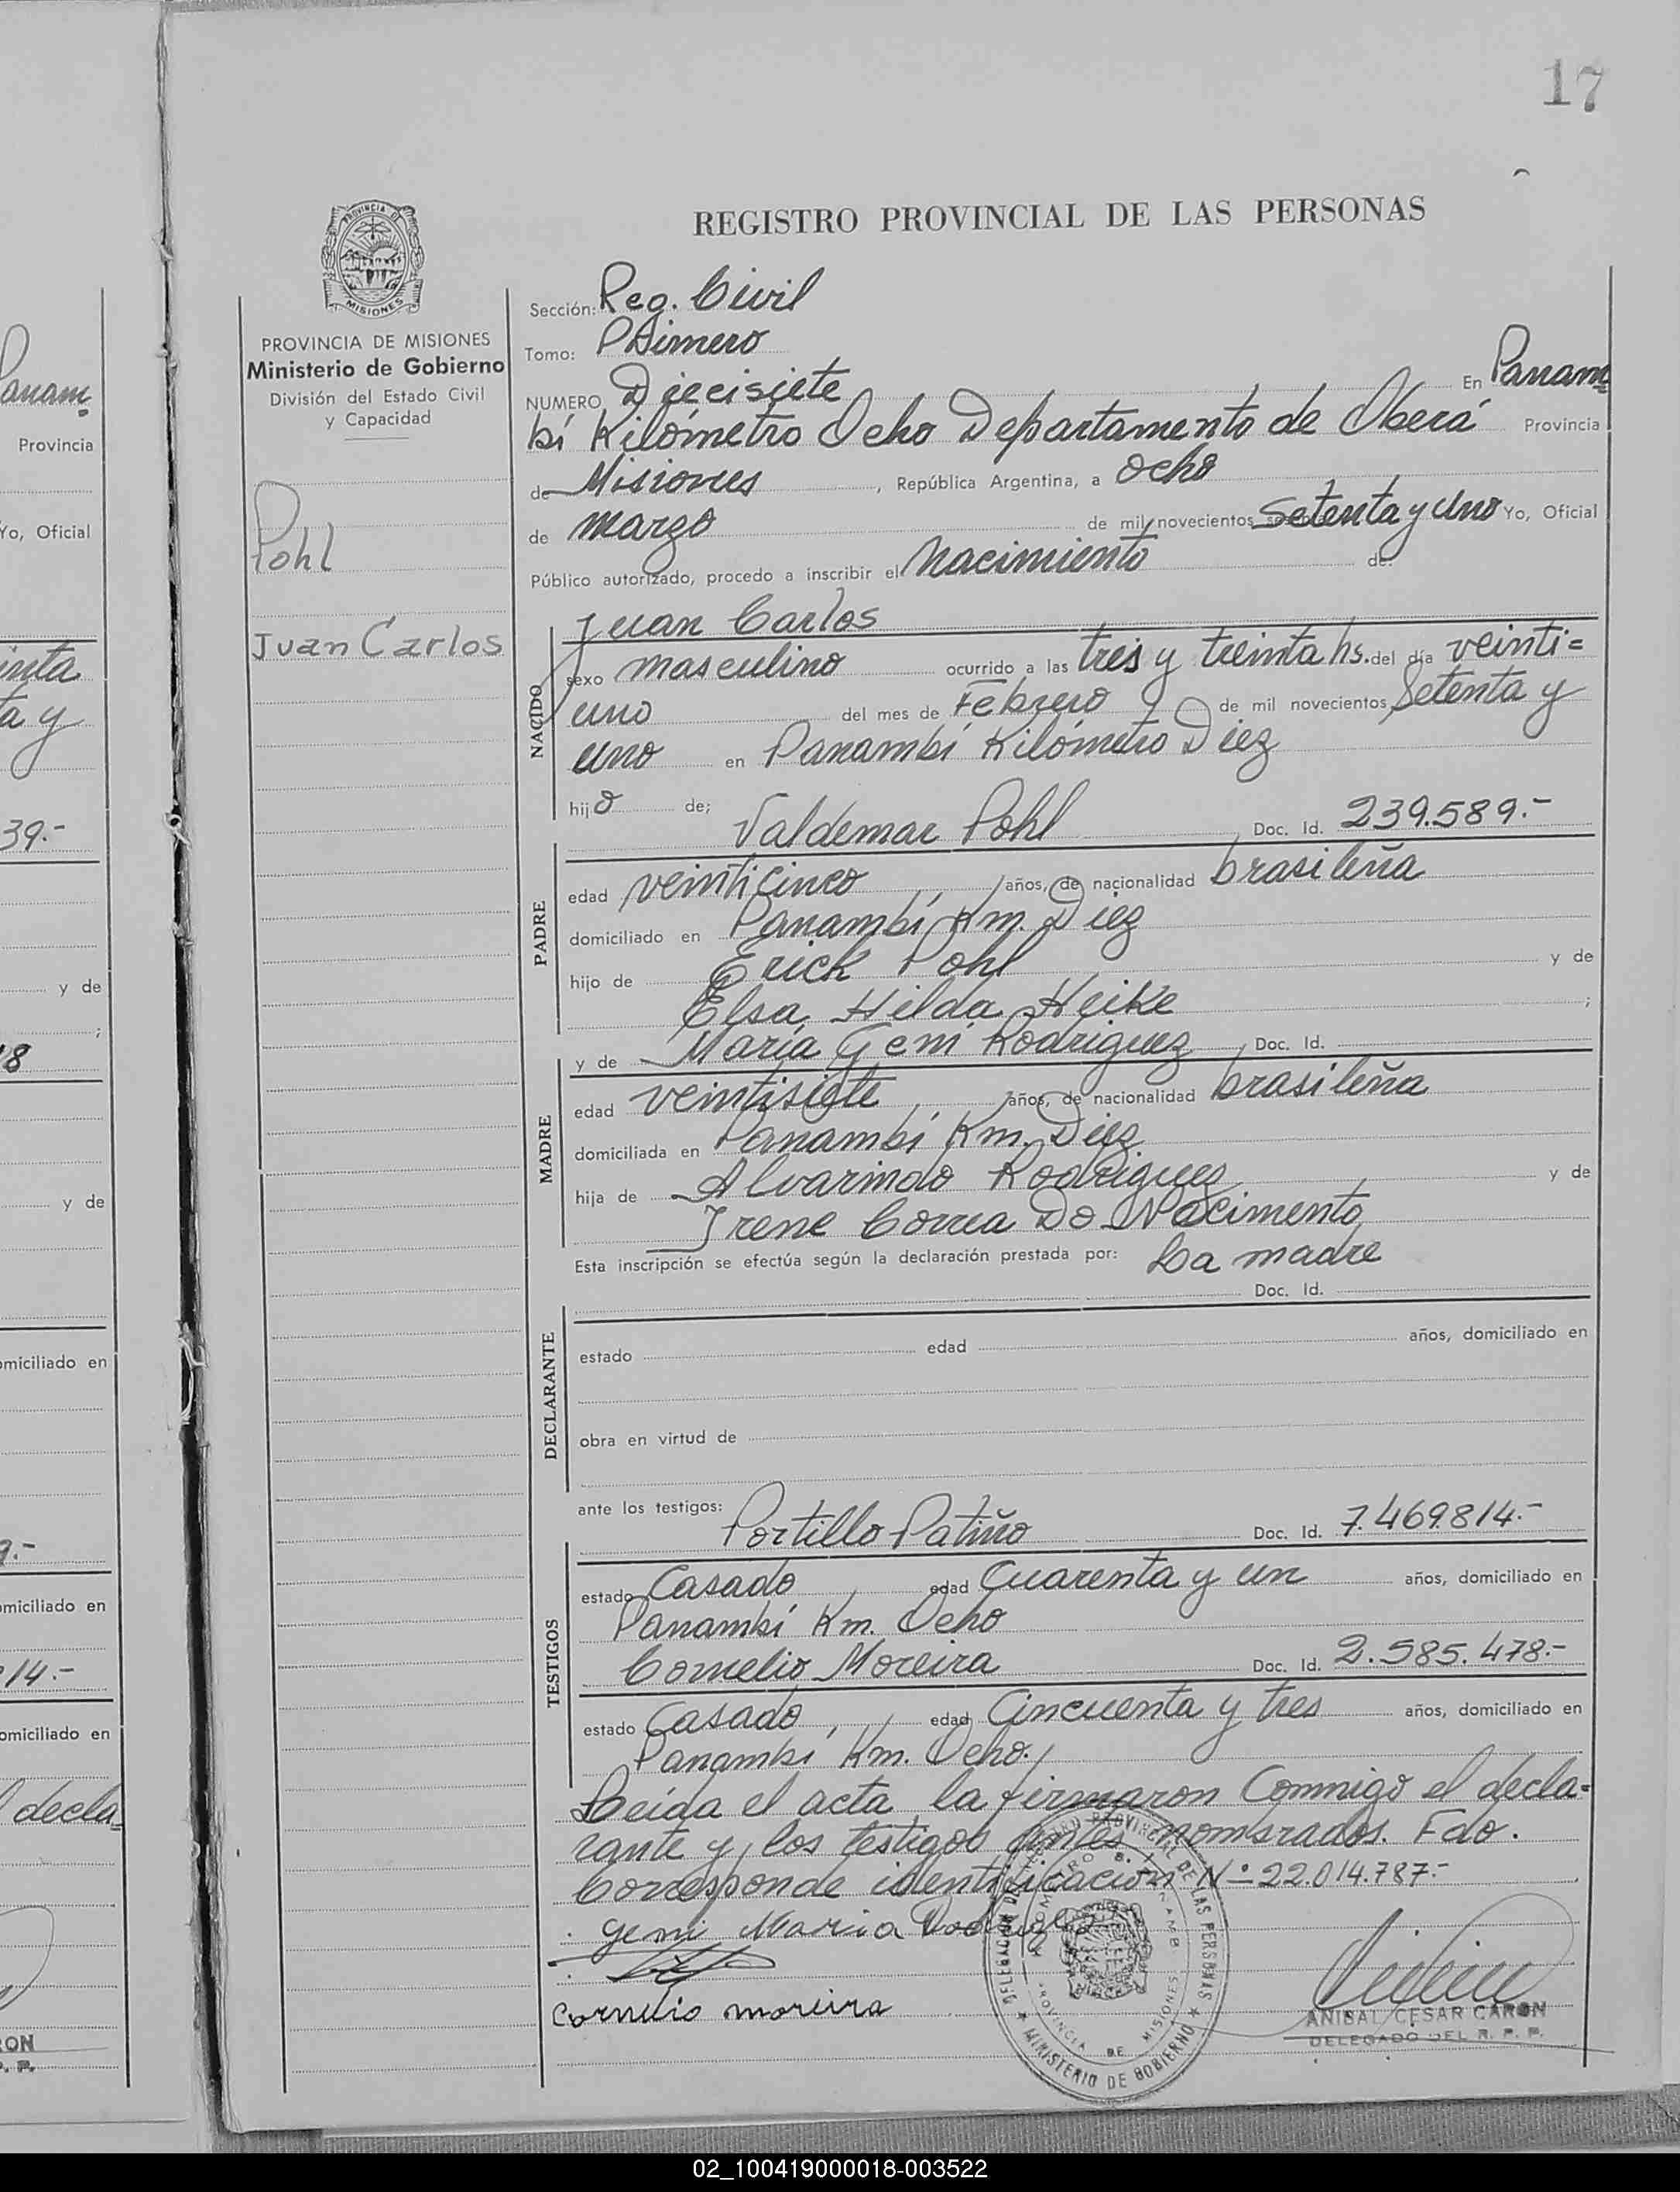 17
REGISTRO PROVINCIAL DE LAS PERSONAS
PROVINCIA DE
MISIONES
PROVINCIA DE MISIONES
Ministerio de Gobierno
División del Estado Civil
y Capacidad
Pohl
Juan Carlos
Sección: Reg. Civil
Tomo: Primero
NUMERO Diecisiete En Panam
bí Kilómetro Ocho Departamento de Oberá Provincia
de Misiones, República Argentina, a ocho
de marzo de mil novecientos Setenta y Uno Yo, Oficial
Público autorizado, procedo a inscribir el Nacimiento de:
NACIDO
Juan Carlos
sexo masculino ocurrido a las tres y treinta hs. del día veinti=
uno del mes de Febrero de mil novecientos Setenta y
uno en Panambí Kilómetro Diez
hijo de; Valdemar Pohl Doc. Id. 239.589.-
PADRE
edad veinticinco, años, de nacionalidad brasileña
domiciliado en Panambí Km. Diez
hijo de Erick Pohl y de
Elsa Hilda Heike ;
y de María Geni Rodriguez, Doc. Id.
MADRE
edad veintisiete, años, de nacionalidad brasileña
domiciliada en Panambí Km. Diez
hija de Alvarindo Rodriguez y de
Irene Correa Do Nacimento
Esta inscripción se efectúa según la declaración prestada por: La madre
Doc. Id.
DECLARANTE
estado edad años, domiciliado en
obra en virtud de
ante los testigos: Portillo Patiño Doc. Id. 7.469.814.-
TESTIGOS
estado Casado, edad Cuarenta y un años, domiciliado en
Panambí Km. Ocho
Cornelio Moreira Doc. Id. 2.585.478.-
estado Casado, edad Cincuenta y tres años, domiciliado en
Panambí Km. Ocho.
Leída el acta, la firmaron Conmigo el decla=
rante y los testigos antes nombrados. Fdo.
Corresponde identificación Nº 22.014.787.-
geni Maria
Cornelio moreira
DELEGACION DEL REGISTRO PROVINCIAL DE LAS PERSONAS
MINISTERIO DE GOBIERNO
PROVINCIA DE MISIONES
ANIBAL CESAR CARON
DELEGADO DEL R. P. P.
Panam
Provincia
Yo, Oficial
inta
a y
39.-
y de
;
18
y de
omiciliado en
9.-
omiciliado en
14.-
omiciliado en
l decla
RON
P. P.
02_100419000018-003522